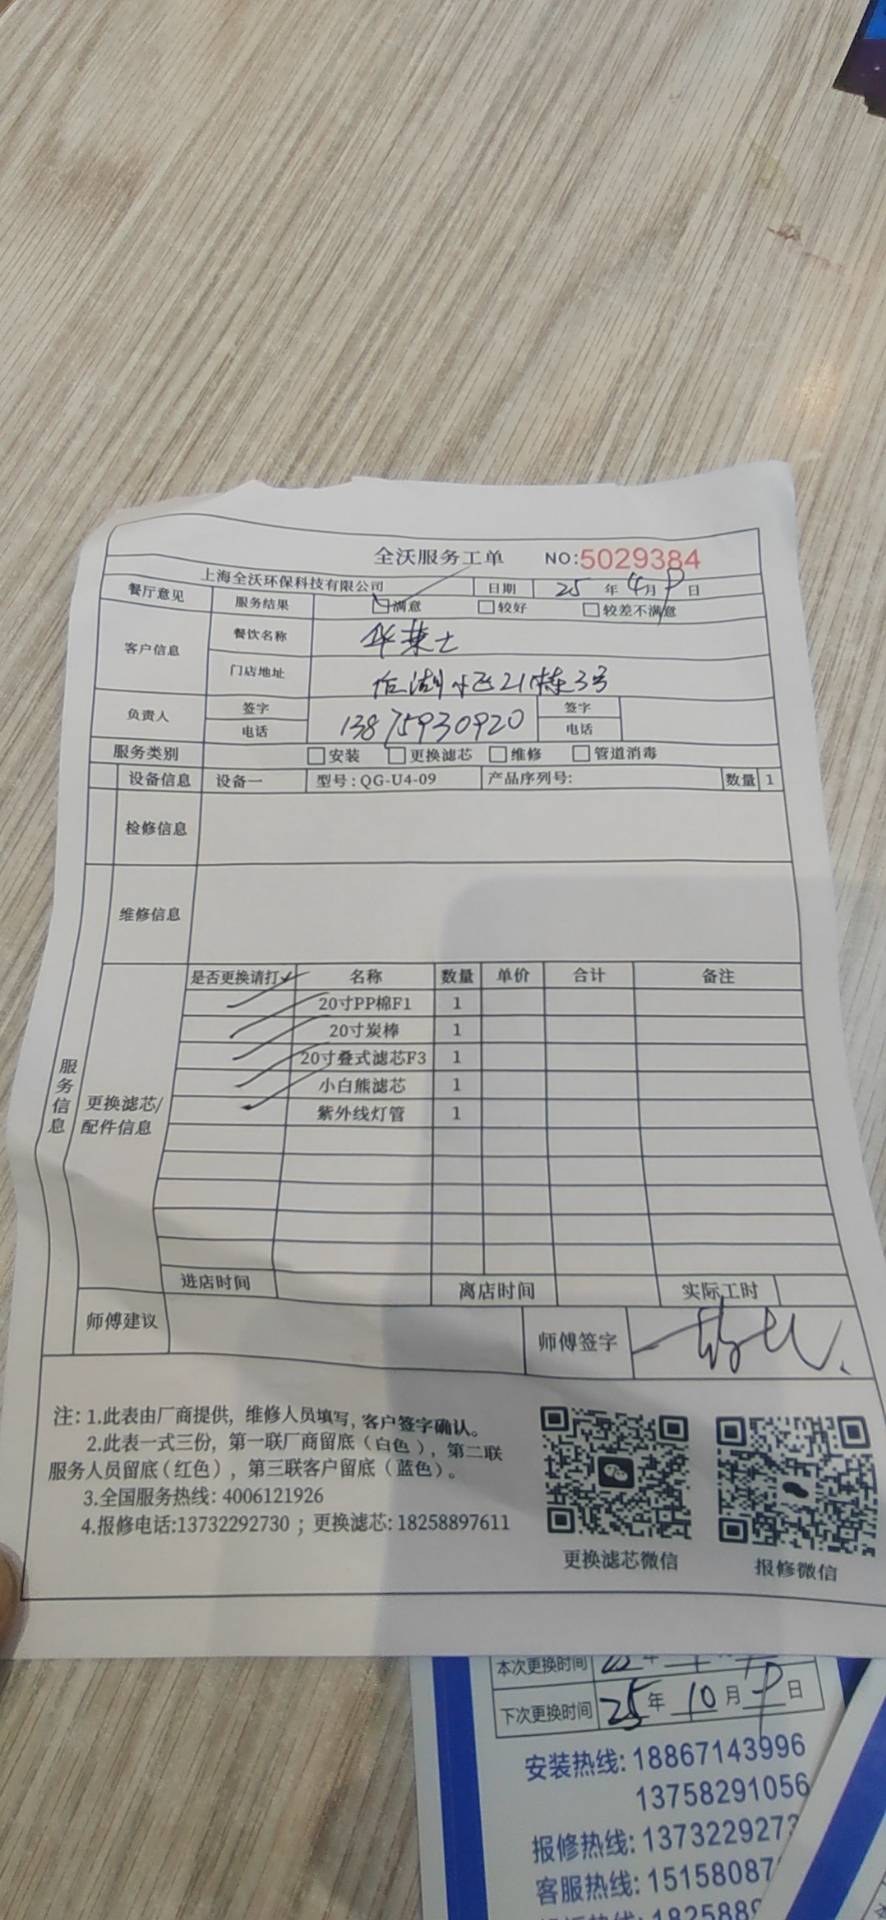 全沃服务工单 NO:5029384
上海全沃环保科技有限公司 日期 25 年 4月 9 日
餐厅意见 服务结果 满意 较好 较差不满意
客户信息 餐饮名称 华莱士
门店地址 后湖小区21栋3号
负责人 签字 签字
电话 13875930920 电话
服务类别 安装 更换滤芯 维修 管道消毒
服务信息
设备信息 设备一 型号:QG-U4-09 产品序列号: 数量 1
检修信息
维修信息
更换滤芯/
配件信息
是否更换请打✓ 名称 数量 单价 合计 备注
✓ 20寸PP棉F1 1
✓ 20寸炭棒 1
✓ 20寸叠式滤芯F3 1
✓ 小白熊滤芯 1
✓ 紫外线灯管 1
进店时间 离店时间 实际工时
师傅建议 师傅签字
注: 1.此表由厂商提供, 维修人员填写, 客户签字确认。
2.此表一式三份, 第一联厂商留底(白色), 第二联
服务人员留底(红色), 第三联客户留底(蓝色)。
3.全国服务热线: 4006121926
4.报修电话:13732292730 ; 更换滤芯: 18258897611
更换滤芯微信 报修微信
本次更换时间
下次更换时间 25 年 10 月 9 日
安装热线: 18867143996
13758291056
报修热线: 1373229273
客服热线: 15158087